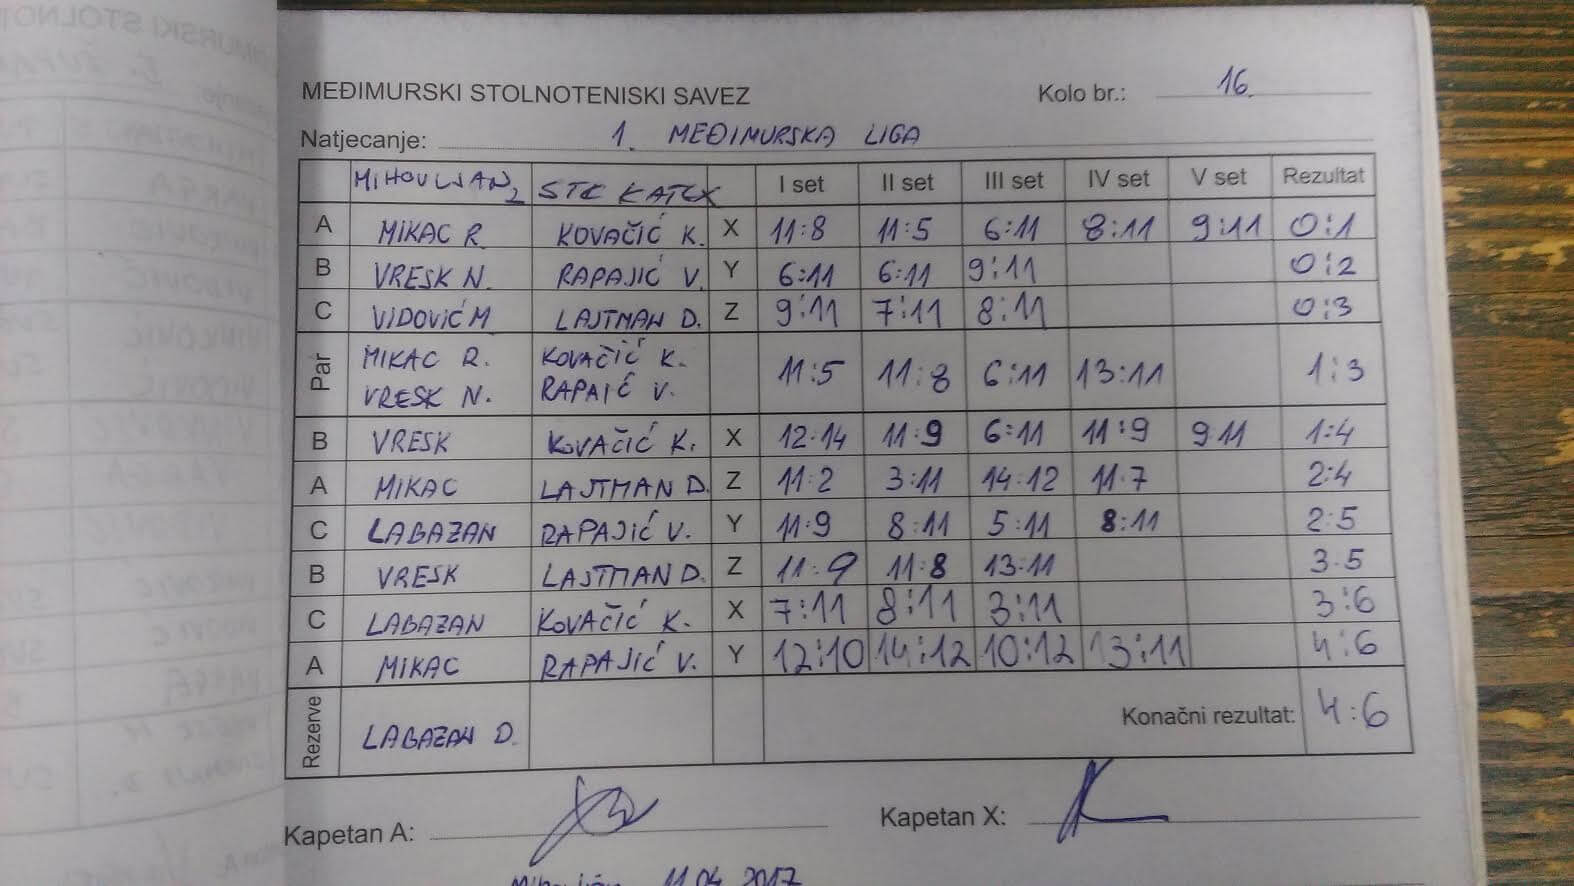 MEĐIMURSKI STOLNOTENISKI SAVEZ Kolo br.: 16.
Natjecanje: 1. MEĐIMURSKA LIGA
MIHOVLJAN 2 STK KATEX I set II set III set IV set V set Rezultat
A MIKAC R. KOVAČIĆ K. X 11:8 11:5 6:11 8:11 9:11 0:1
B VRESK N. RAPAJIĆ V. Y 6:11 6:11 9:11 0:2
C VIDOVIĆ M LAJTMAN D. Z 9:11 7:11 8:11 0:3
Par MIKAC R. KOVAČIĆ K.
VRESK N. RAPAIĆ V. 11:5 11:8 6:11 13:11 1:3
B VRESK KOVAČIĆ K. X 12:14 11:9 6:11 11:9 9:11 1:4
A MIKAC LAJTMAN D. Z 11:2 3:11 14:12 11:7 2:4
C LABAZAN RAPAJIĆ V. Y 11:9 8:11 5:11 8:11 2:5
B VRESK LAJTMAN D. Z 11:9 11:8 13:11 3:5
C LABAZAN KOVAČIĆ K. X 7:11 8:11 3:11 3:6
A MIKAC RAPAJIĆ V. Y 12:10 14:12 10:12 13:11 4:6
Rezerve LABAZAN D. Konačni rezultat: 4:6
Kapetan A: Kapetan X:
11.04.2017